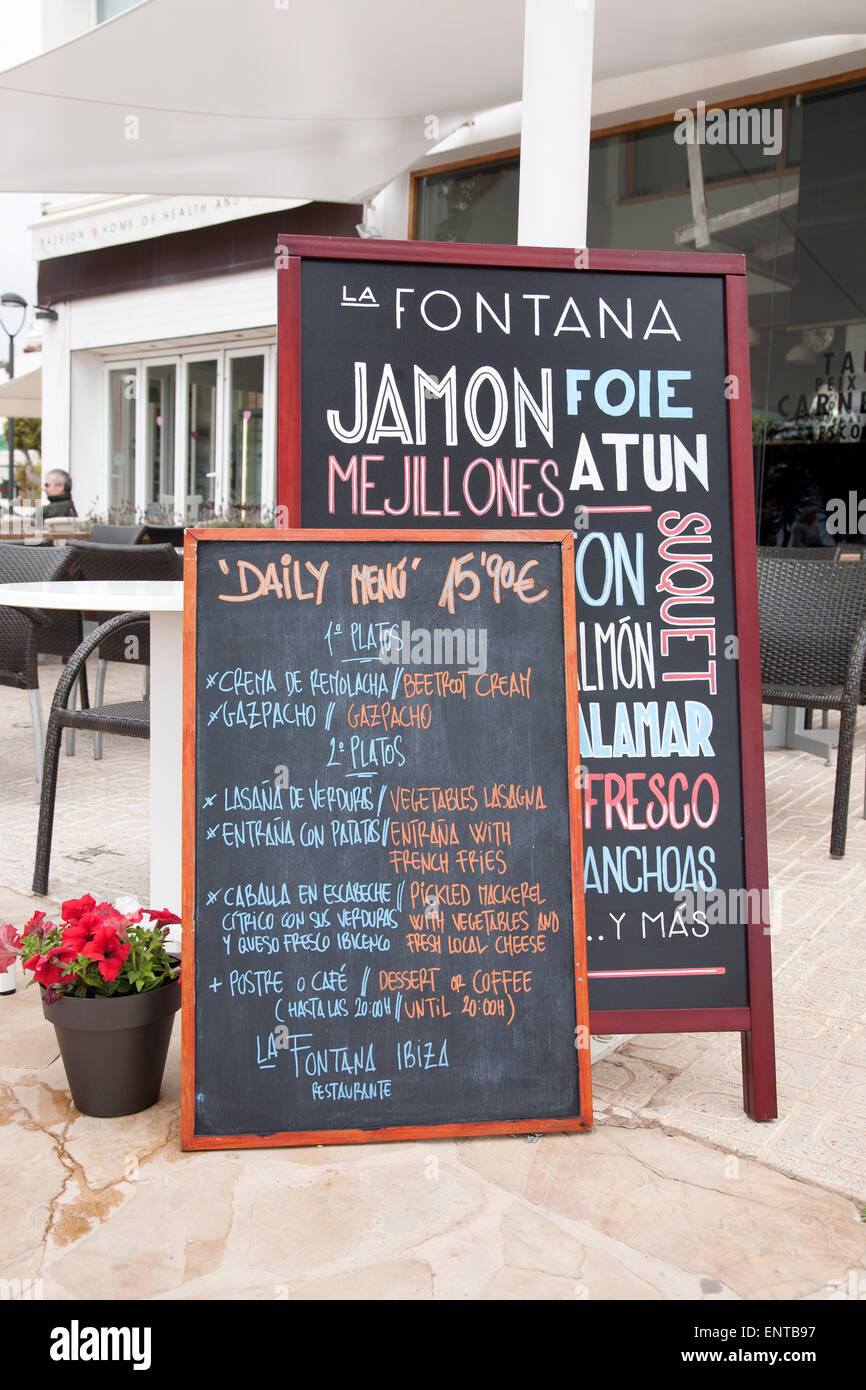 PASSION HOME OF HEALTH AND
LA FONTANA
JAMON
FOIE
MEJILLONES
ATUN
SUQUET
FRESCO
ANCHOAS
...Y MÁS
CARNE
"DAILY MENÚ" 15'90€
1º PLATOS
* CREMA DE REMOLACHA // BEETROOT CREAM
* GAZPACHO // GAZPACHO
2º PLATOS
* LASAÑA DE VERDURAS // VEGETABLES LASAGNA
* ENTRAÑA CON PATATAS // ENTRAÑA WITH
FRENCH FRIES
* CABALLA EN ESCABECHE // PICKLED MACKEREL
CÍTRICO CON SUS VERDURAS WITH VEGETABLES AND
Y QUESO FRESCO IBICENCO FRESH LOCAL CHEESE
+ POSTRE O CAFÉ // DESSERT OR COFFEE
(HASTA LAS 20:00H // UNTIL 20:00H)
LA FONTANA IBIZA
RESTAURANTE
alamy
Image ID: ENTB97
www.alamy.com